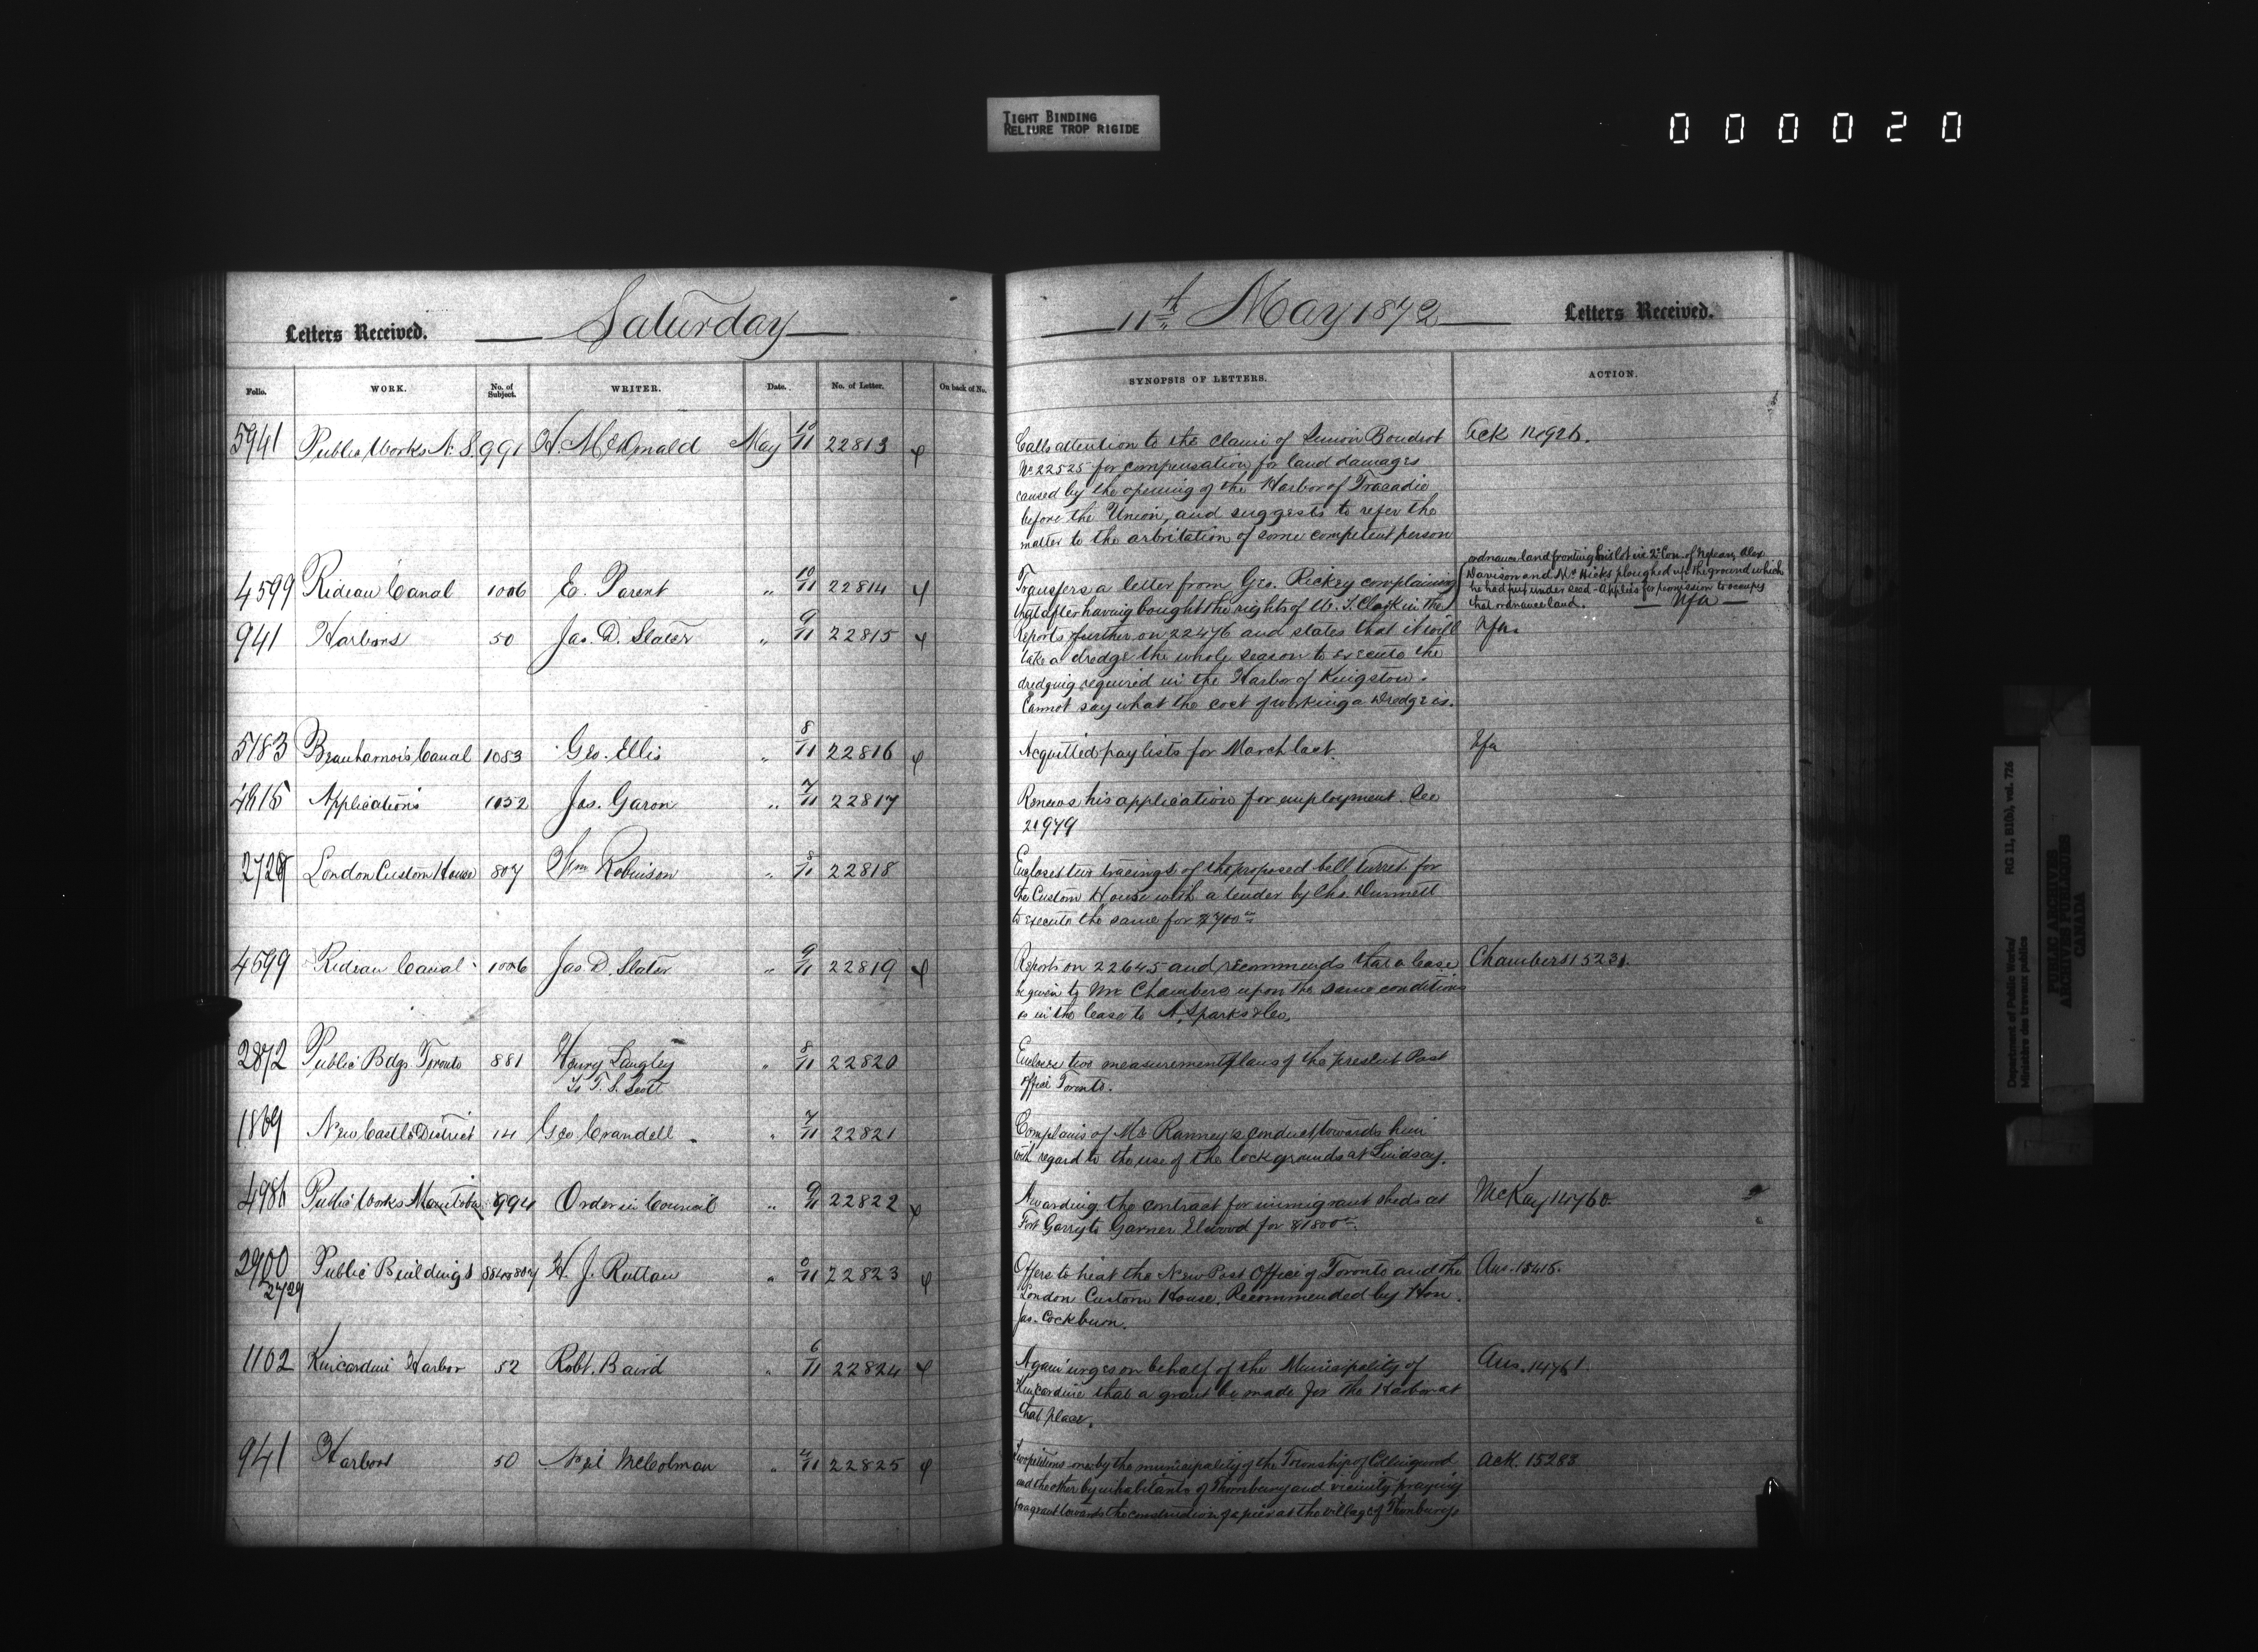 TIGHT BINDING
RELIURE TROP RIGIDE
000020
Letters Received. Saturday
Folio. WORK. No. of Subject. WRITER. Date. No. of Letter. On back of No.
5941 Public Works N.S. 991 H. McDonald May 10/11 22813
4599 Rideau Canal 1006 E. Parent " 10/11 22814
941 Harbors 50 Jas. D. Slater " 9/11 22815
5183 Beauharnois Canal 1083 Geo. Ellis " 8/11 22816
Applications 1052 Jas. Garon " 7/11 22817
London Custom House 807 Wm Robinson " 8/11 22818
4599 Rideau Canal 1006 Jas. D. Slater " 9/11 22819
2872 Public Bdgs Toronto 881 Henry Langley " 8/11 22820
To T. S. Scott
1869 New Castle District 14 Geo Crandell " 7/11 22821
4986 Public Works Manitoba 994 Order in Council " 9/11 22822
2900 Public Buildings H. J. Ruttan " 22823
2729
1102 Kincardine Harbor 52 Robt. Baird " 6/11 22824
941 Harbors 50 Neil McColman " 22825
11th May 1872 Letters Received.
SYNOPSIS OF LETTERS. ACTION.
Calls attention to the claim of Simon Boudrot Ack 14926.
No 22525 for compensation for land damages
caused by the opening of the Harbor of Tracadie
before the Union, and suggests to refer the
matter to the arbitration of some competent person
Transfers a letter from Geo. Rickey complaining
that after having bought the rights of W. T. Clark in the
ordnance land fronting his lot in 2d Con. of Nepean, Alex
Davison and Mr Hicks ploughed up the ground which
he had put under seed - applies for permission to occupy
that ordnance land. — Nfa —
Reports further on 22476 and states that it will Nfa.
take a dredge the whole season to execute the
dredging required in the Harbor of Kingston.
Cannot say what the cost of working a Dredge is.
Acquitted pay lists for March last. Nfa
Renews his application for employment. See
21979
Encloses two tracings of the proposed bell turret for
the Custom House with a tender by Chs. Dunnett
to execute the same for $700
Reports on 22645 and recommends that a lease Chambers 15231.
be given to Mr Chambers upon the same conditions
as in the lease to N. Sparks & Co.
Encloses two measurement plans of the present Post
Office Toronto.
Complains of Mr Ranney's conduct towards him
with regard to the use of the lock grounds at Lindsay.
Awarding the contract for immigrant sheds at McKay 14760.
Fort Garry to Garner Elwood for $1800
Offers to heat the New Post Office of Toronto and the Ans. 15416.
London Custom House. Recommended by Hon.
Jas. Cockburn.
Again urges on behalf of the Municipality of Ans. 14761.
Kincardine that a grant be made for the Harbor at
that place.
Two petitions one by the municipality of the Township of Collingwood Ack. 15288
and the other by inhabitants of Thornbury and vicinity praying
for a grant towards the construction of a pier at the village of Thornbury
Department of Public Works/
Ministère des travaux publics
RG 11, B1(b), vol. 726
PUBLIC ARCHIVES
ARCHIVES PUBLIQUES
CANADA